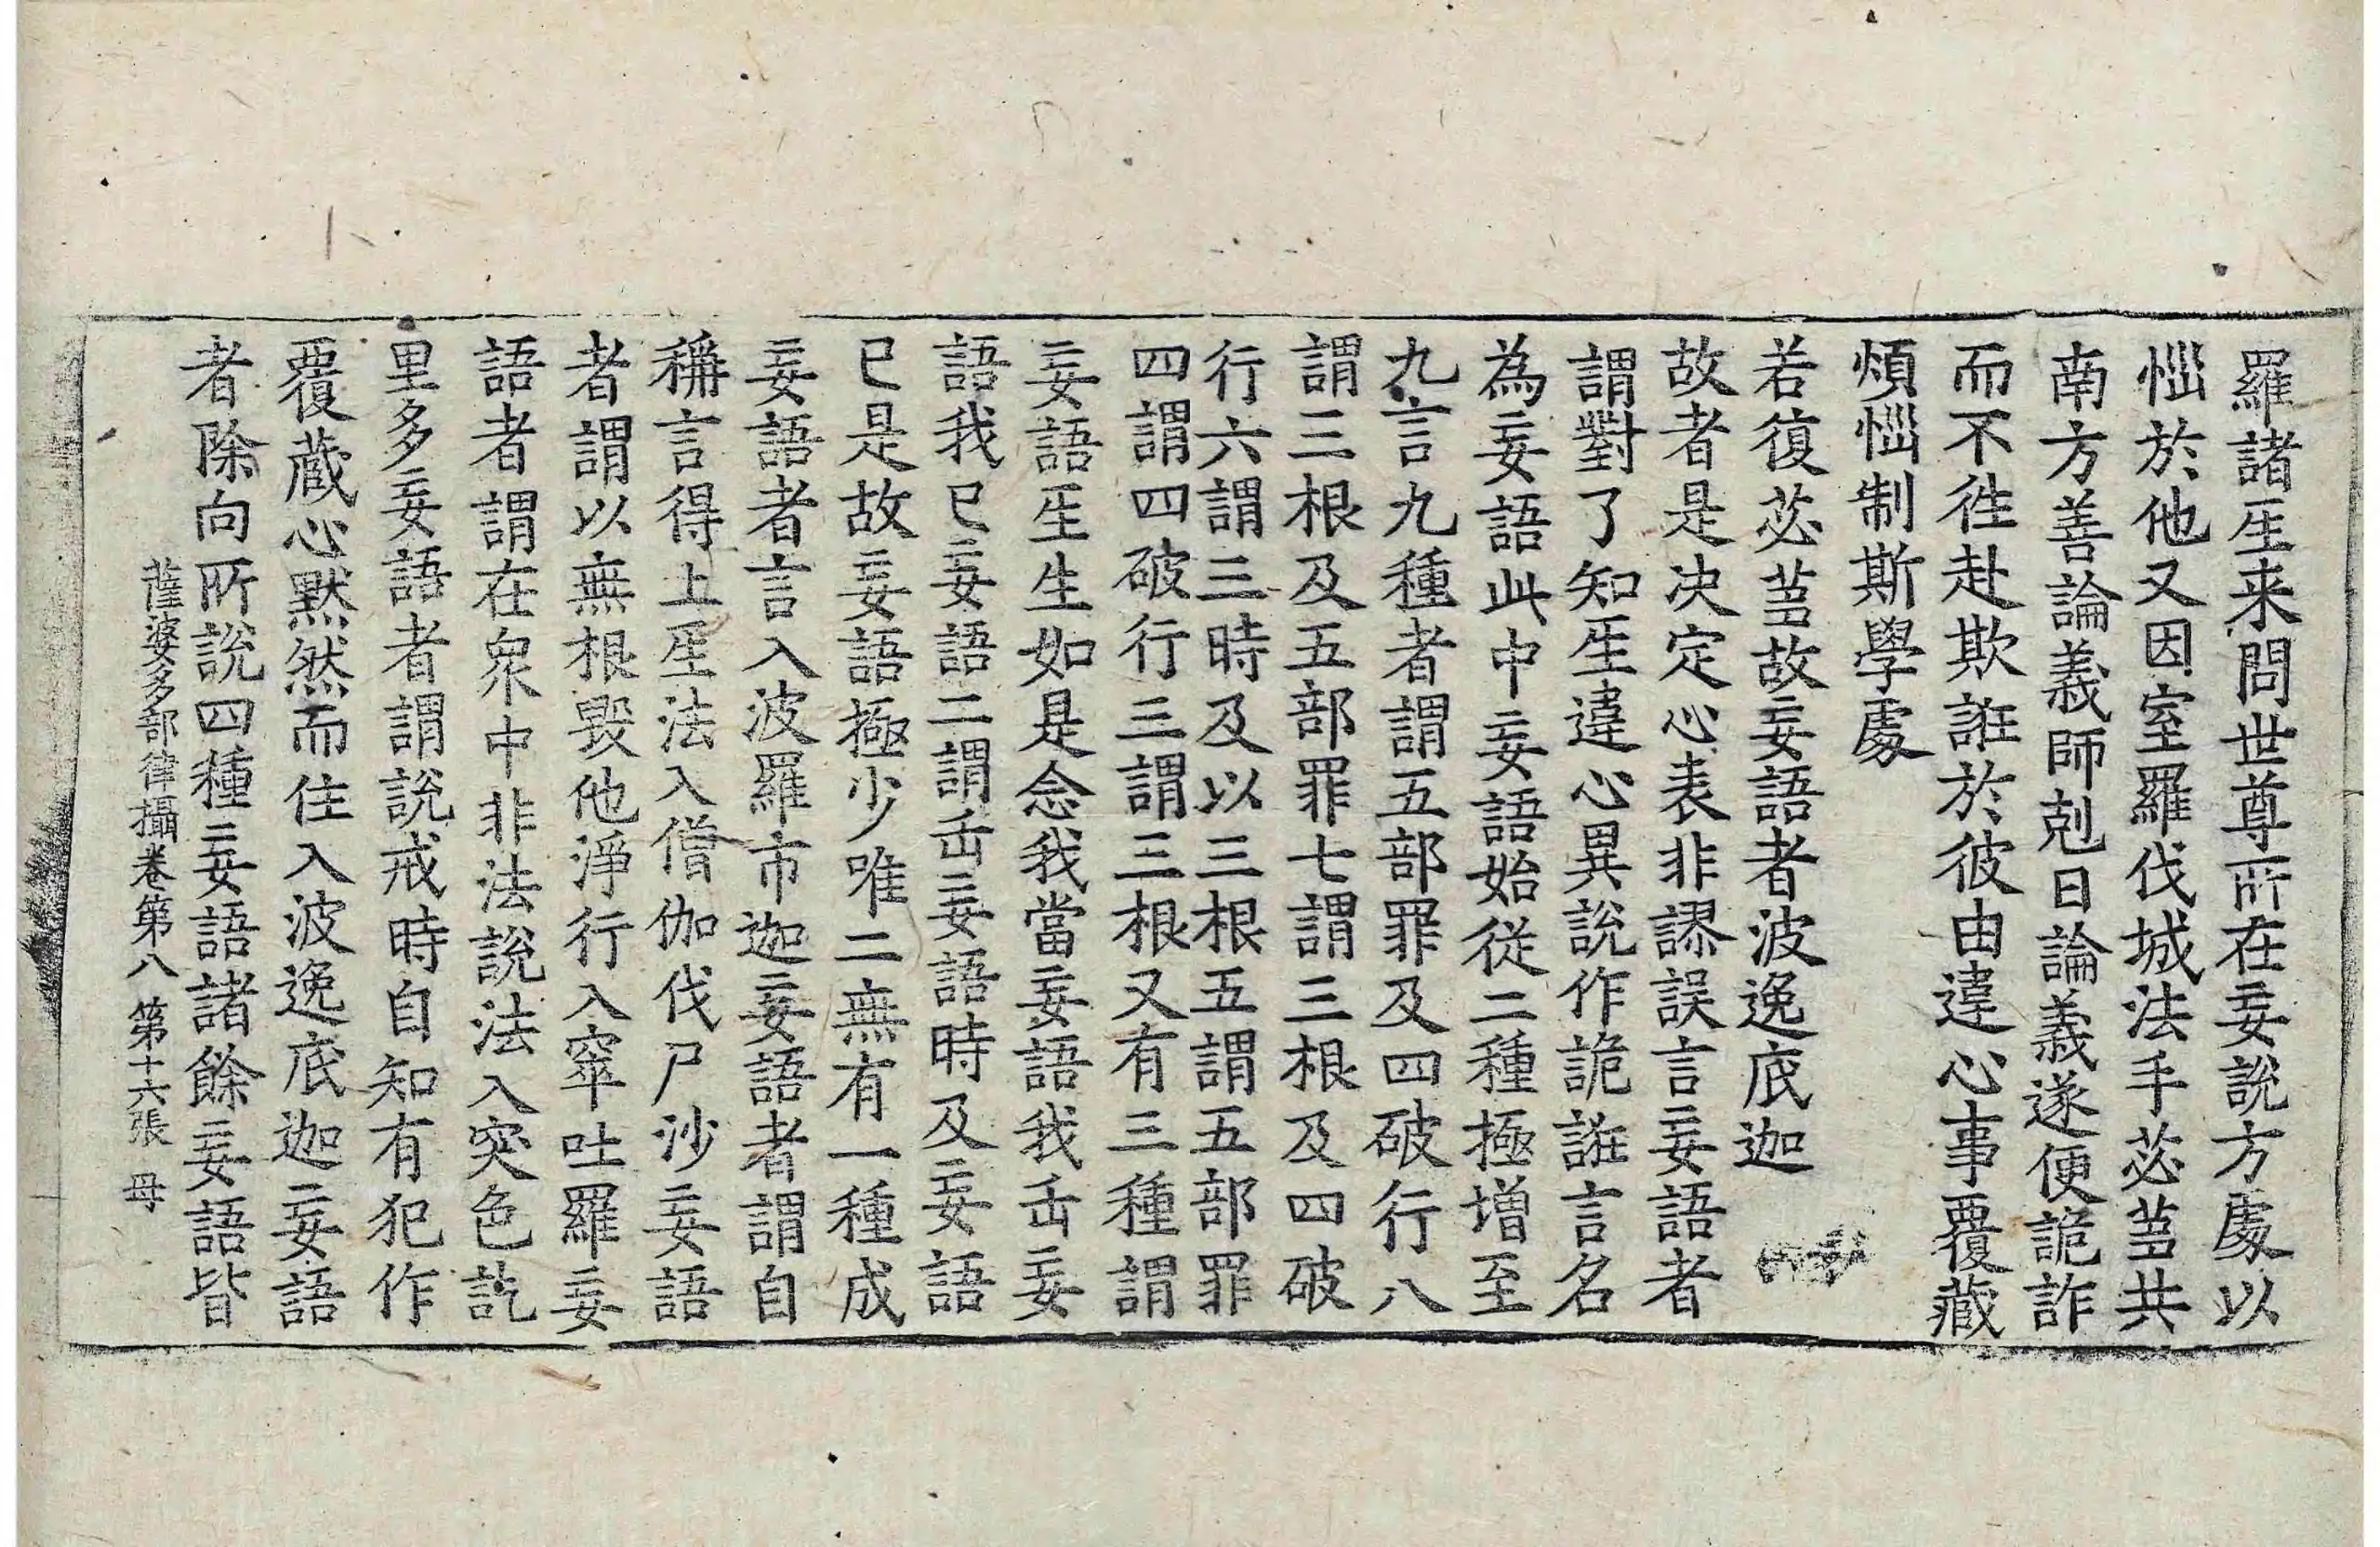 羅諸𤯔来問世尊所在妄說方處以
惱於他又因室羅伐城法手苾芻共
南方善論義師剋日論義遂便詭詐
而不徃赴欺誑於彼由違心事覆藏
煩惱制斯學處
若復苾芻故妄語者波逸底迦
故者是决定心表非謬誤言妄語者
謂對了知𤯔違心異說作詭誑言名
為妄語此中妄語始從二種極增至
九言九種者謂五部罪及四破行八
謂三根及五部罪七謂三根及四破
行六謂三時及以三根五謂五部罪
四謂四破行三謂三根又有三種謂
妄語𤯔生如是念我當妄語我𠙺妄
語我已妄語二謂𠙺妄語時及妄語
已是故妄語極少唯二無有一種成
妄語者言入波羅市迦妄語者謂自
稱言得上𤯔法入僧伽伐尸沙妄語
者謂以無根毀他淨行入窣吐羅妄
語者謂在衆中非法說法入突色訖
里多妄語者謂說戒時自知有犯作
覆藏心黙然而住入波逸底迦妄語
者除向所說四種妄語諸餘妄語皆
薩婆多部律攝卷第八 第十六張 母